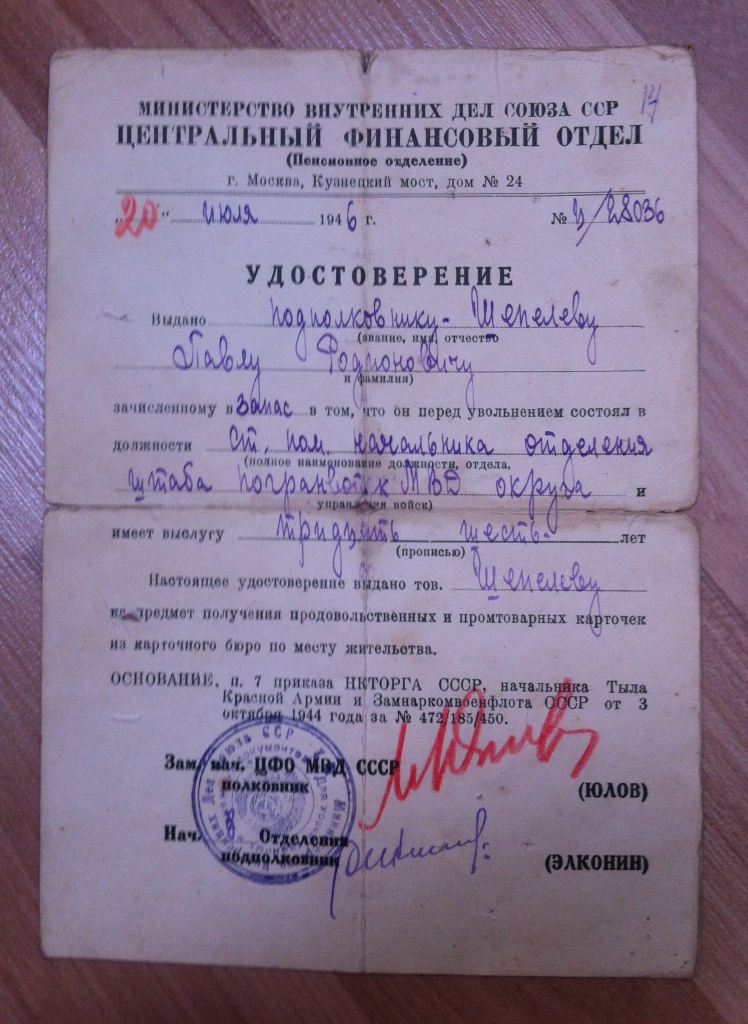 17
МИНИСТЕРСТВО ВНУТРЕННИХ ДЕЛ СОЮЗА ССР
ЦЕНТРАЛЬНЫЙ ФИНАНСОВЫЙ ОТДЕЛ
(Пенсионное отделение)
г. Москва, Кузнецкий мост, дом № 24
„20" июля 1946 г. № /28036
УДОСТОВЕРЕНИЕ
Выдано подполковнику- Шепелеву
(звание, имя, отчество
Павлу Родионовичу
и фамилия)
зачисленному в запас в том, что он перед увольнением состоял в
должности Ст. пом. начальника отделения
(полное наименование должности, отдела,
штаба погранвойск МВД округа и
управления войск)
имеет выслугу тридцать шесть- лет
(прописью)
Настоящее удостоверение выдано тов. Шепелеву
на предмет получения продовольственных и промтоварных карточек
из карточного бюро по месту жительства.
ОСНОВАНИЕ, п. 7 приказа НКТОРГА СССР, начальника Тыла
Красной Армии и Замнаркомвоенфлота СССР от 3
октября 1944 года за № 472/185/450.
Зам. нач. ЦФО МВД СССР
полковник (ЮЛОВ)
Нач. 8 Отделения
подполковник (ЭЛКОНИН)